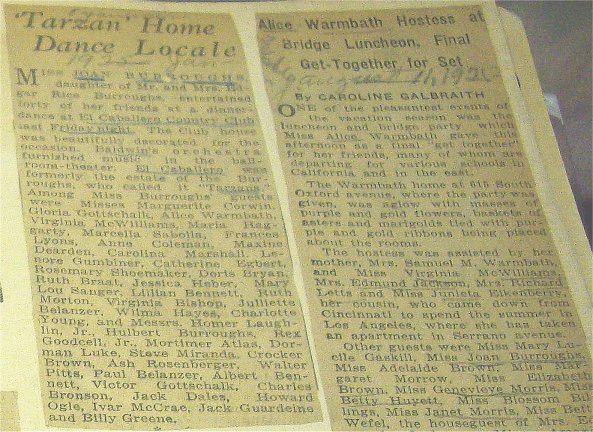 'Tarzan' Home
Dance Locale
MISS JOAN BURROUGHS,
daughter of Mr. and Mrs. Ed-
gar Rice Burroughs, entertained
forty of her friends at a dinner-
dance at El Caballero Country Club
last Friday night. The Club house
was beautifully decorated for the
occasion. orchestra
furnished music in the ball-
room-theater. El Caballero was
formerly the estate of the Bur-
roughs, who called it "Tarzana."
Among Miss Burroughs' guests
were Misses Marguerite Corwin,
Gloria Gottschalk, Alice Warmbath,
Virginia McWilliams, Maria Hag-
garty, Marcella Sabolia, Frances
Lyons, Anne Coleman, Maxine
Dearden, Carolina Marshall, Le-
nore Gumbiner, Catherine Egbert,
Rosemary Shoemaker, Doris Bryan,
Ruth Braat, Jessica Heber, Mary
Lou Sanger, Lillian Bennett, Ruth
Morton, Virginia Bishop, Julliette
Belanzer, Wilma Hayes, Charlotte
Young, and Messrs. Homer Laugh-
lin, Jr., Hulbert Burroughs, Rex
Goodcell, Jr., Mortimer Atlas, Dor-
man Luke, Steve Miranda, Crocker
Brown, Ash Rosenberger, Walter
Pitts, Paul Belanzer, Albert Ben-
nett, Victor Gottschalk, Charles
Bronson, Jack Dales, Howard
Ogle, Ivar McCrae, Jack Guardeine
and Billy Greene.
Alice Warmbath Hostess at
Bridge Luncheon, Final
Get-Together for Set
By CAROLINE GALBRAITH
ONE of the pleasantest events of
the vacation season was the
luncheon and bridge party which
Miss Alice Warmbath gave this
afternoon as a final "get together"
for her friends, many of whom are
departing for various schools in
California and in the east.
The Warmbath home at 615 South
Oxford avenue, where the party was
given, was aglow with masses of
purple and gold flowers, baskets of
asters and marigolds tied with
ple and gold ribbons being placed
about the rooms.
The hostess was assisted by her
mother, Mrs. Samuel M. Warmbath,
and Miss Virginia McWilliams,
Mrs. Edmund Jackson, Mrs. Richard
Letts and Miss Junieta Eikenberry,
her cousin who came down from
Cincinnati to spend the summer in
Los Angeles, where she has taken
an apartment in Serrano avenue.
Other guests were Miss Mary Lu-
cile Gaskill, Miss Joan Burroughs,
Miss Adelaide Brown, Miss Mar-
garet Morrow, Miss Elizabeth
Brown, Miss Genevieve Morris, Miss
Betty Huyett, Miss Blossom Bil-
lings, Miss Janet Morris, Miss Bett
Wefel, the houseguest of Mrs. E